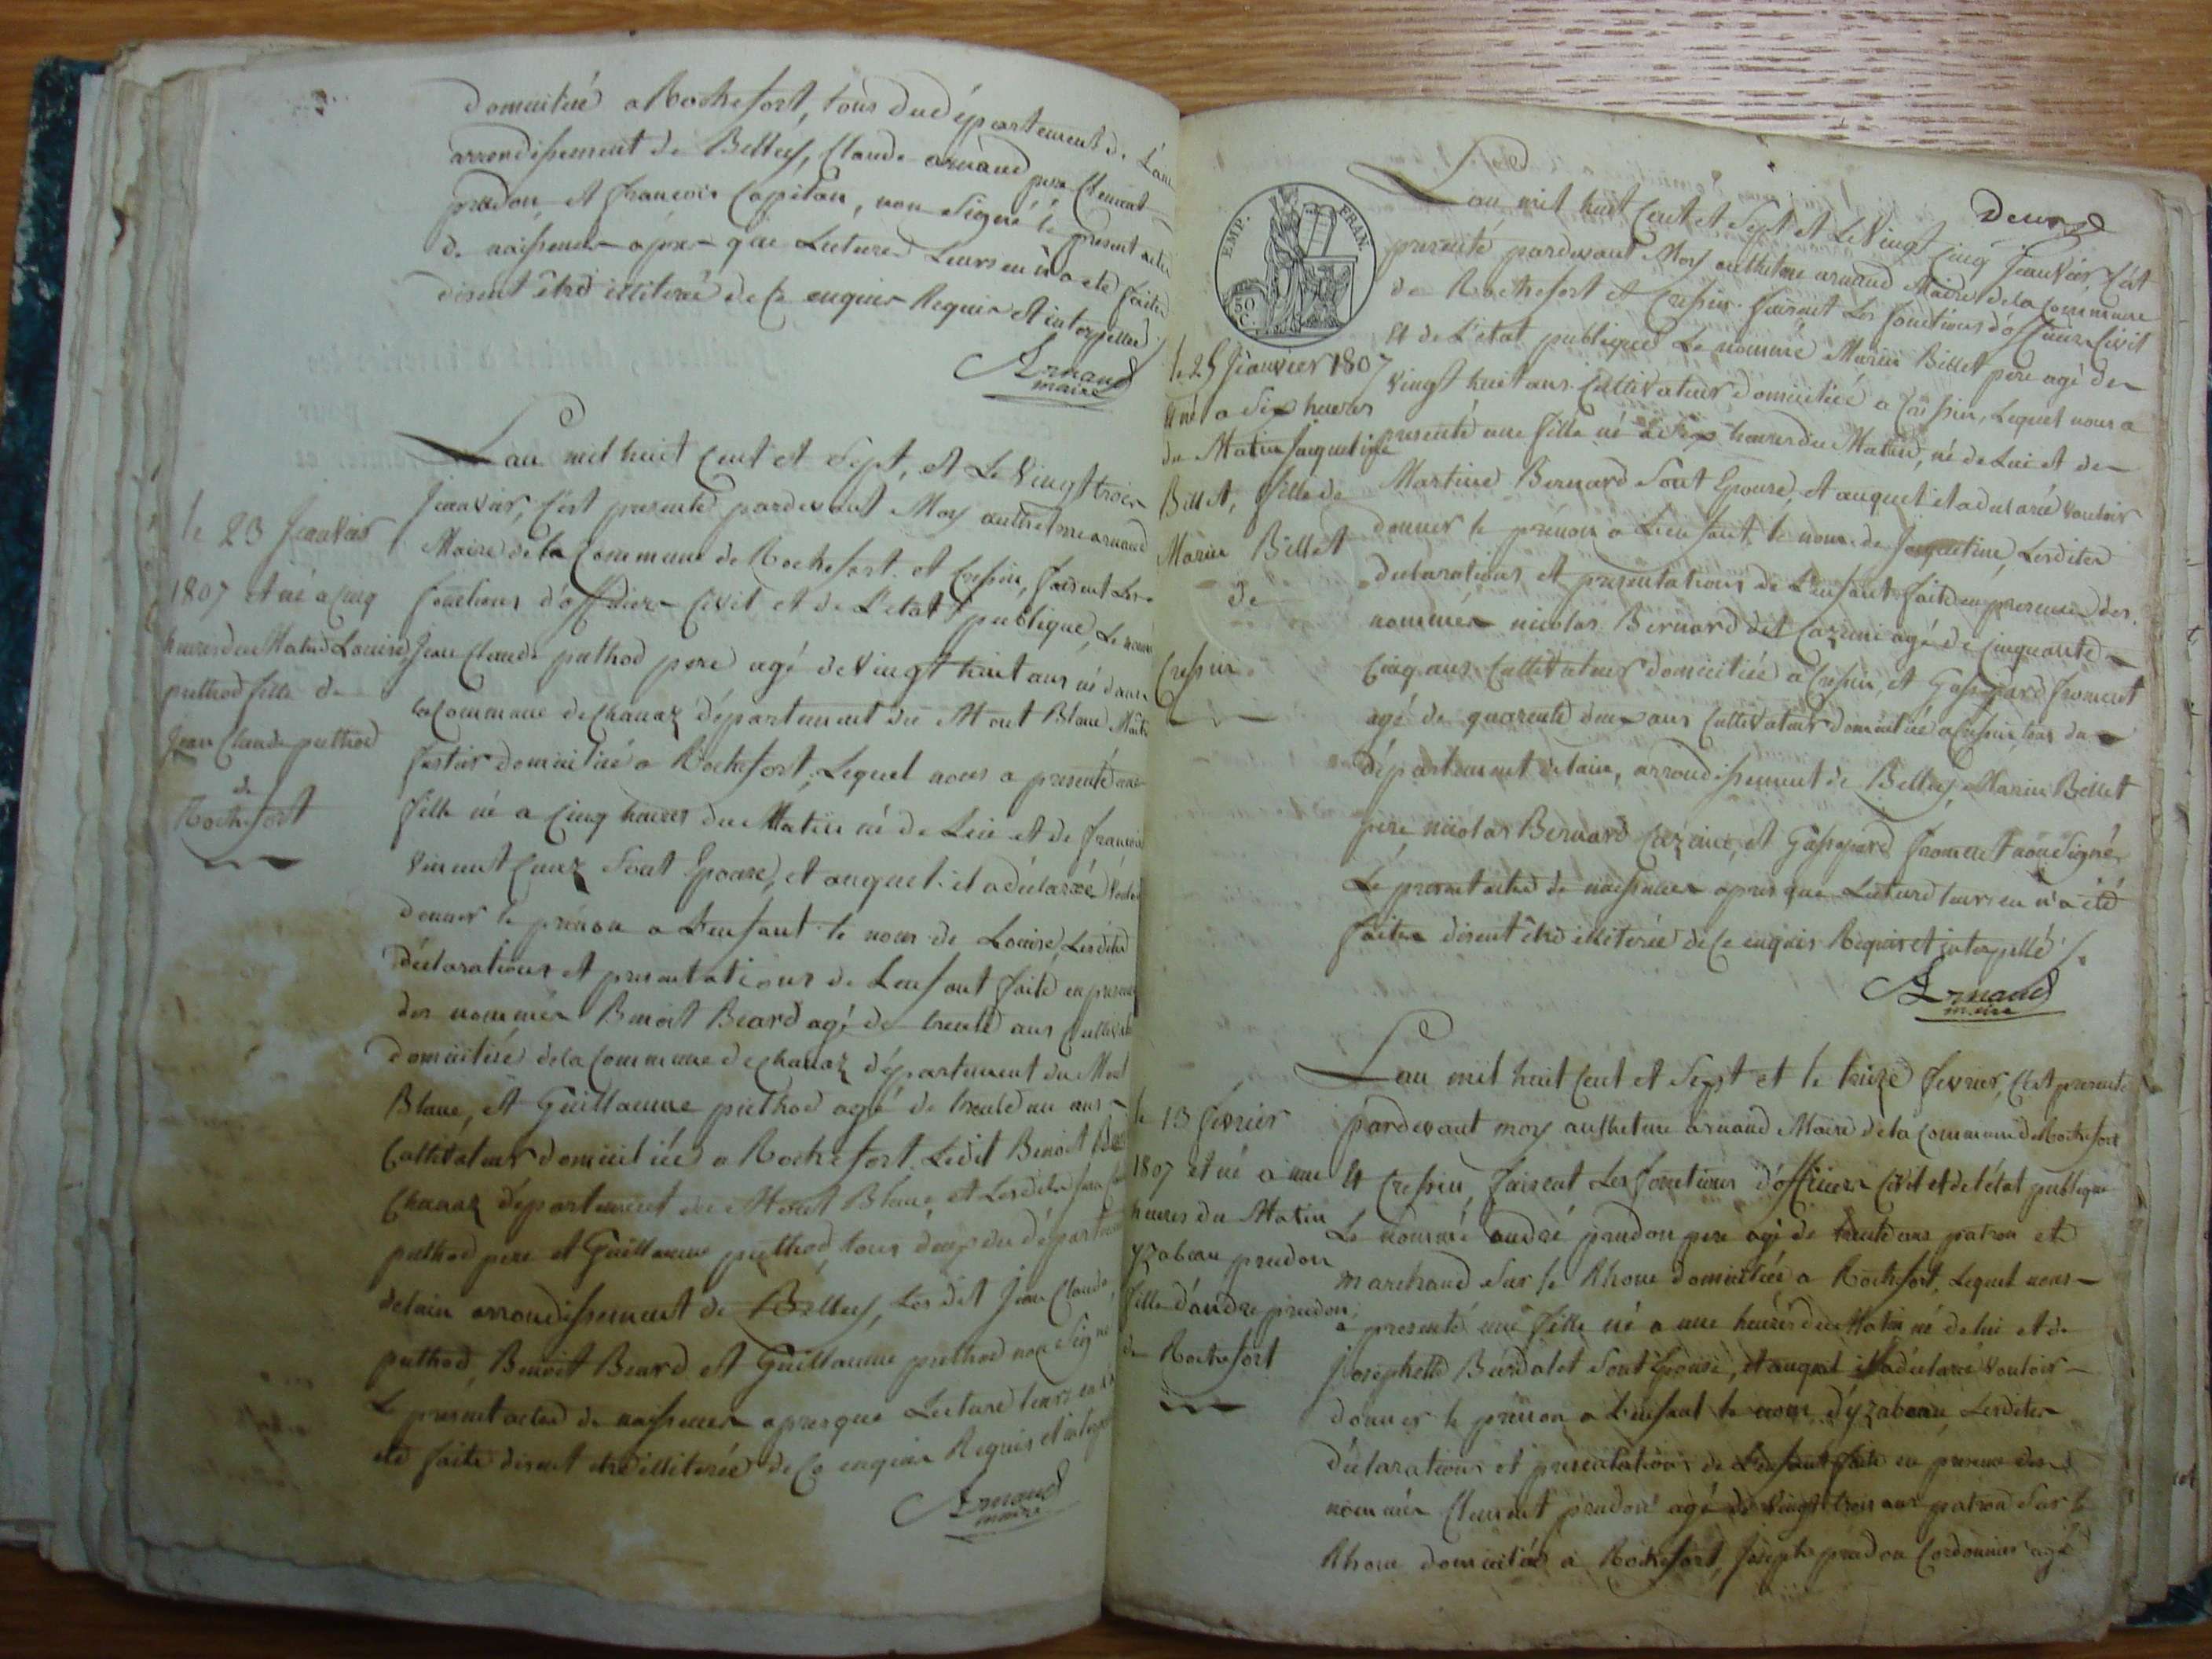 domicitiré a Rochefort, tous dud épartement de L'ain
arrondissement de Belley, Claude arnaud pere Clement
prudon et francois Capitan, non Signé le present actes
de naissence apres que Lectured Leurs en n a eté faites
disent êtred illiteré de Ce enquis Requis et interpelled
Arnaud
maire
Lan mil huict Cent et Sept, et Le Vingt trois
Jeanvier, C'est presented pardevant Moy anthelme arnaud
Maire de la Commune de Rochefort et Cressin, faisent Les
fonctions d'officier Civil et de L'etat publique, Le nommé
Jean Claude puthod pere agé de Vingt huit ans né dans
la Commune de Chanaz département du Mont Blanc
domicitiré a Rochefort, Lequel nous a presenté une
fille né a Cinq heures du Matin né de Lui et de
Vincent Sont Epouse, et auquel il a déclaré
donner le prénon a L'enfant le nom de Louise, Lesdites
déclarations et presentations de L'enfant faite en presence
des nommés Benoit Beard agé de trente ans
domicitiré de la Commune de Chanaz département du Mont
Blanc, et Guillaume puthod agé de trente un ans
Cultivateur domicitiré a Rochefort. Ledit Benoit
Chanaz département du Mont Blanc, et Lesdits Jean
puthod pere et Guillaume puthod, tous deux du départ
delain arrondissement de Belley, Lesdit Jean Claude
puthod, Benoit Beard et Guillaume puthod non Signé
Le present acted de naissence apres que Lectured leurs en
eté faite disent etred illiterée de Ce enquis Requis et
Arnaud
maire
le 23 Jeanvier
1807 et né a Cinq
heures du Matin Louise
puthod fille de
Jean Claude puthod
de
Rochefort
Deux
EMP. FRAN.
50 C.
Lan mil huit Cent et Sept et Le Vingt Cinq Jeanvier, C'ét
presenté pardevant Moy anthelme arnaud Maire de la Commune
de Rochefort et Cressin faisent Les fonctions d'officier Civil
et de L'état publique Le nommé Marin Billet pere agé de
Vingt huit ans Cultivateur domicitiré a Cressin, Lequel nous a
presenté une fille né a Six heures du Matin, né de Lui et de
Martine Bernard Sont Epouse, et auquel il a déclaré Vouloir
donner le prénon a L'enfant le nom de Jaqueline, Lesdites
declarations et presentations de L'enfant faite en presence des
nommés nicolas Bernard dit Cazeine agé de Cinquante
Cinq ans Cultivateur domicitiré a Cressin, et Gasspard froment
agé de quarente deux ans Cultivateur domicitiré a Cressin, tous du
département delain, arrondissement de Belley, Marin Billet
pere, nicolas Bernard Cazeine, et Gasspard froment non Signé
Le present acted de naissence apres que Lectured leurs en n'a été
faites disent êtred illiterée de Ce enquis Requis et interpellé
Arnaud
maire
le 25 Jeanvier 1807
et né a Six heures
du Matin Jaqueline
Billet, fille de
Marin Billet
de
Cressin
Lan mil huit Cent et Sept et le treize fevrier, C'ét presenté
pardevant moy anthelme arnaud Maire de la Commune de Rochefort
et Cressin, faisent Les fonctions d'officier Civil et de l'état publique
Le nommé andré prudon pere agé de trente ans patron et
marchand Sur le Rhone domicitiré a Rochefort, Lequel nous
a presenté une fille né a une heures du Matin né de lui et de
Josephette Burdalet Sont Epouse, et auquel il a déclaré Vouloir
donner le prénon a L'enfant le nom d'yzabeau, Lesdites
déclarations et presentations de L'enfant faite en presence des
nommés Clement prudon agé de Vingt trois ans patron Sur le
Rhone domicitiré a Rochefort, Joseph prudon Cordonnier agé
le 13 fevrier
1807 et né a une
heures du Matin
yzabeau prudon
fille d'andre prudon
de Rochefort